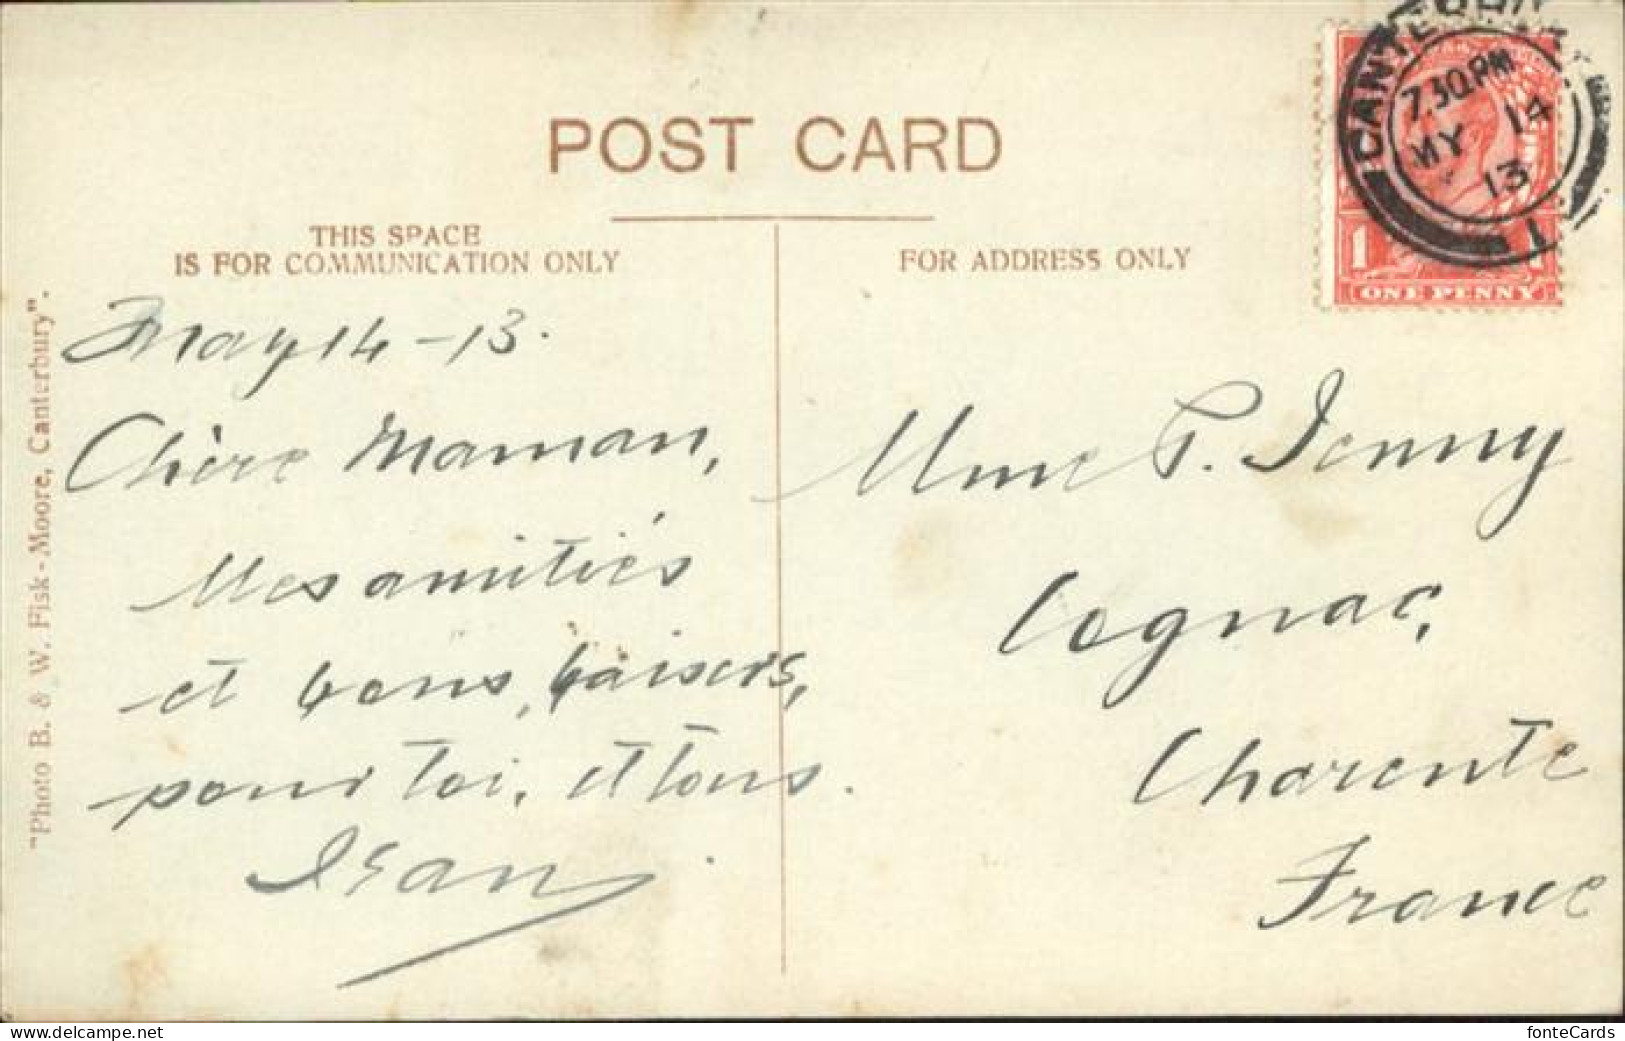 POST CARD
THIS SPACE
IS FOR COMMUNICATION ONLY
FOR ADDRESS ONLY
CANTERBURY
7.30 PM
MY 14
13
1
1
ONE PENNY
May 14-13.
Chère Maman,
Mes amitiés
et bons, baisers,
pour toi, et tous.
Jean
Mme P. Jenny
Cognac,
Charente
France
"Photo B. & W. Fisk-Moore, Canterbury".
www.delcampe.net/en_US/collectibles
fonteCards